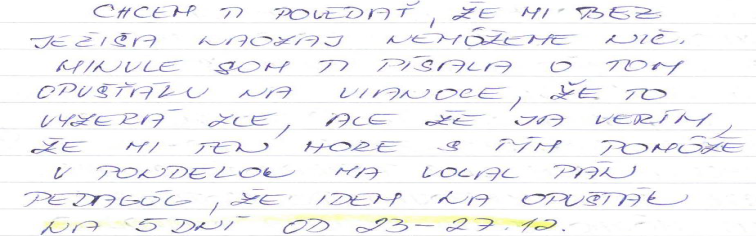 CHCEM TI POVEDAŤ, ŽE MI BEZ
JEŽIŠA NAOZAJ NEMÔŽEME NIČ.
MINULE SOM TI PÍSALA O TOM
OPUŠŤÁKU NA VIANOCE, ŽE TO
VYZERÁ ZLE, ALE ŽE JA VERÍM,
ŽE MI TEN HORE S TÝM POMÔŽE
V PONDELOK MA VOLAL PÁN
PEDAGÓG, ŽE IDEM NA OPUŠŤÁK
NA 5 DNÍ OD 23-27.12.